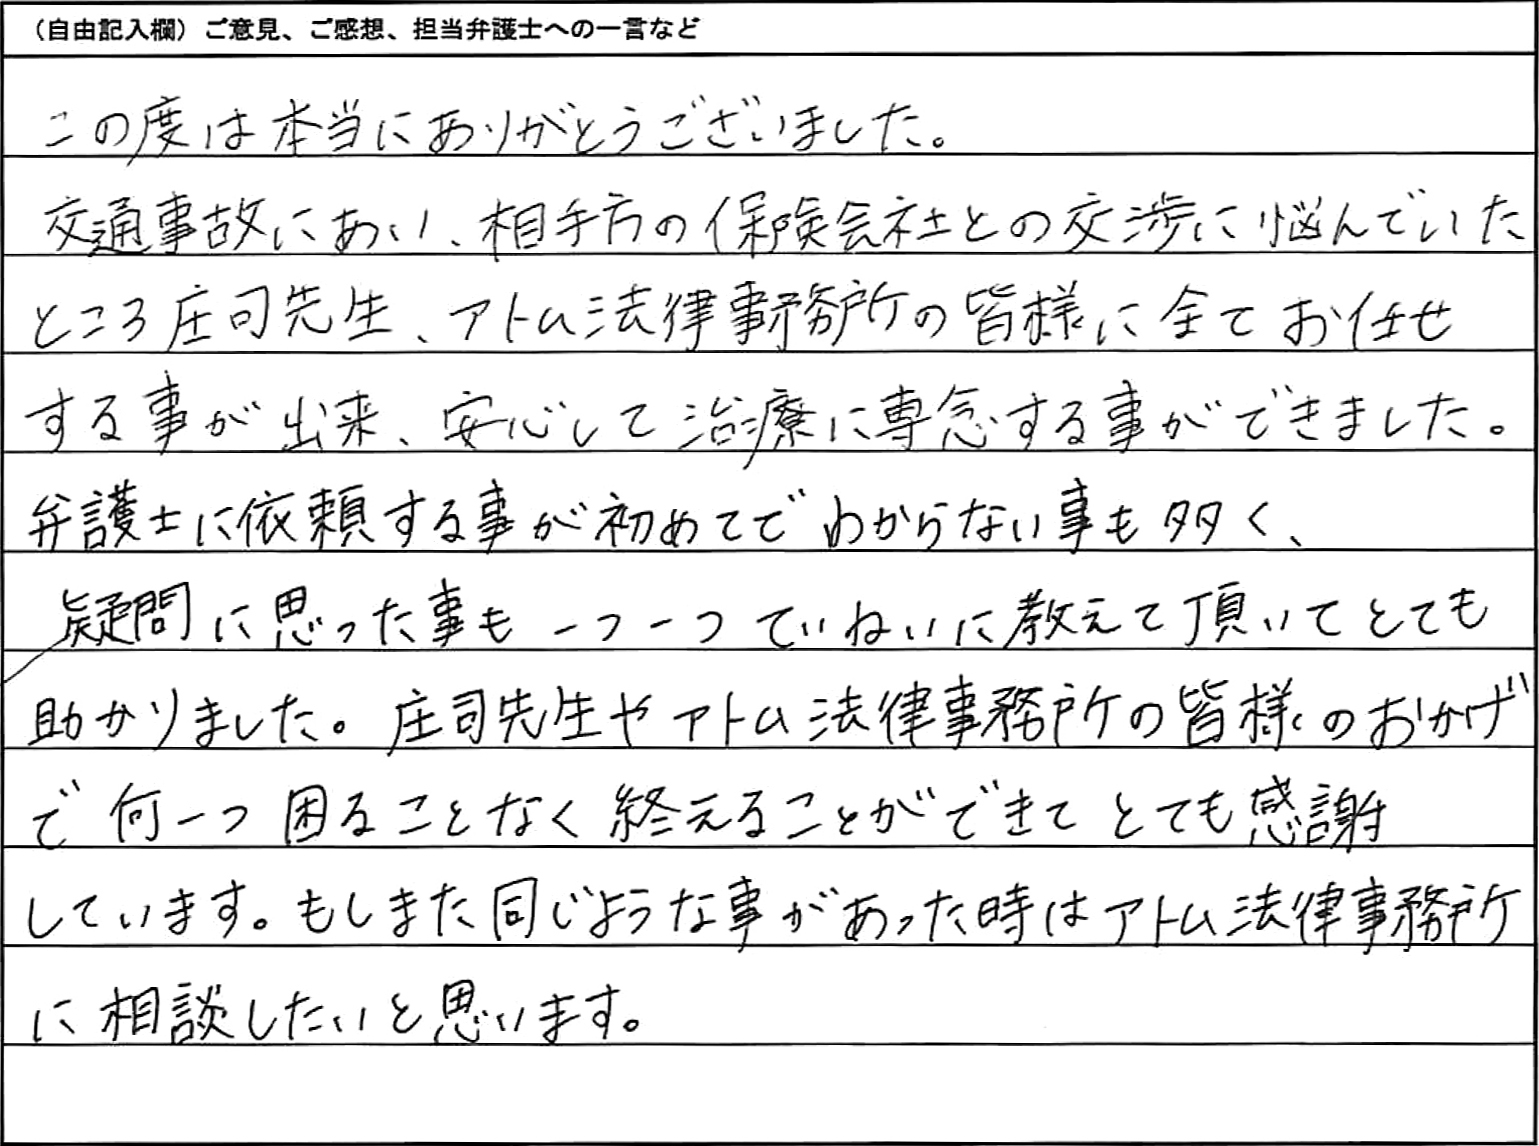 （自由記入欄）ご意見、ご感想、担当弁護士への一言など
この度は本当にありがとうございました。
交通事故にあい、相手方の保険会社との交渉に悩んでいた
ところ庄司先生、アトム法律事務所の皆様に全てお任せ
する事が出来、安心して治療に専念する事ができました。
弁護士に依頼する事が初めてでわからない事も多く、
疑問に思った事も一つ一つていねいに教えて頂いてとても
助かりました。庄司先生やアトム法律事務所の皆様のおかげ
で何一つ困ることなく終えることができてとても感謝
しています。もしまた同じような事があった時はアトム法律事務所
に相談したいと思います。